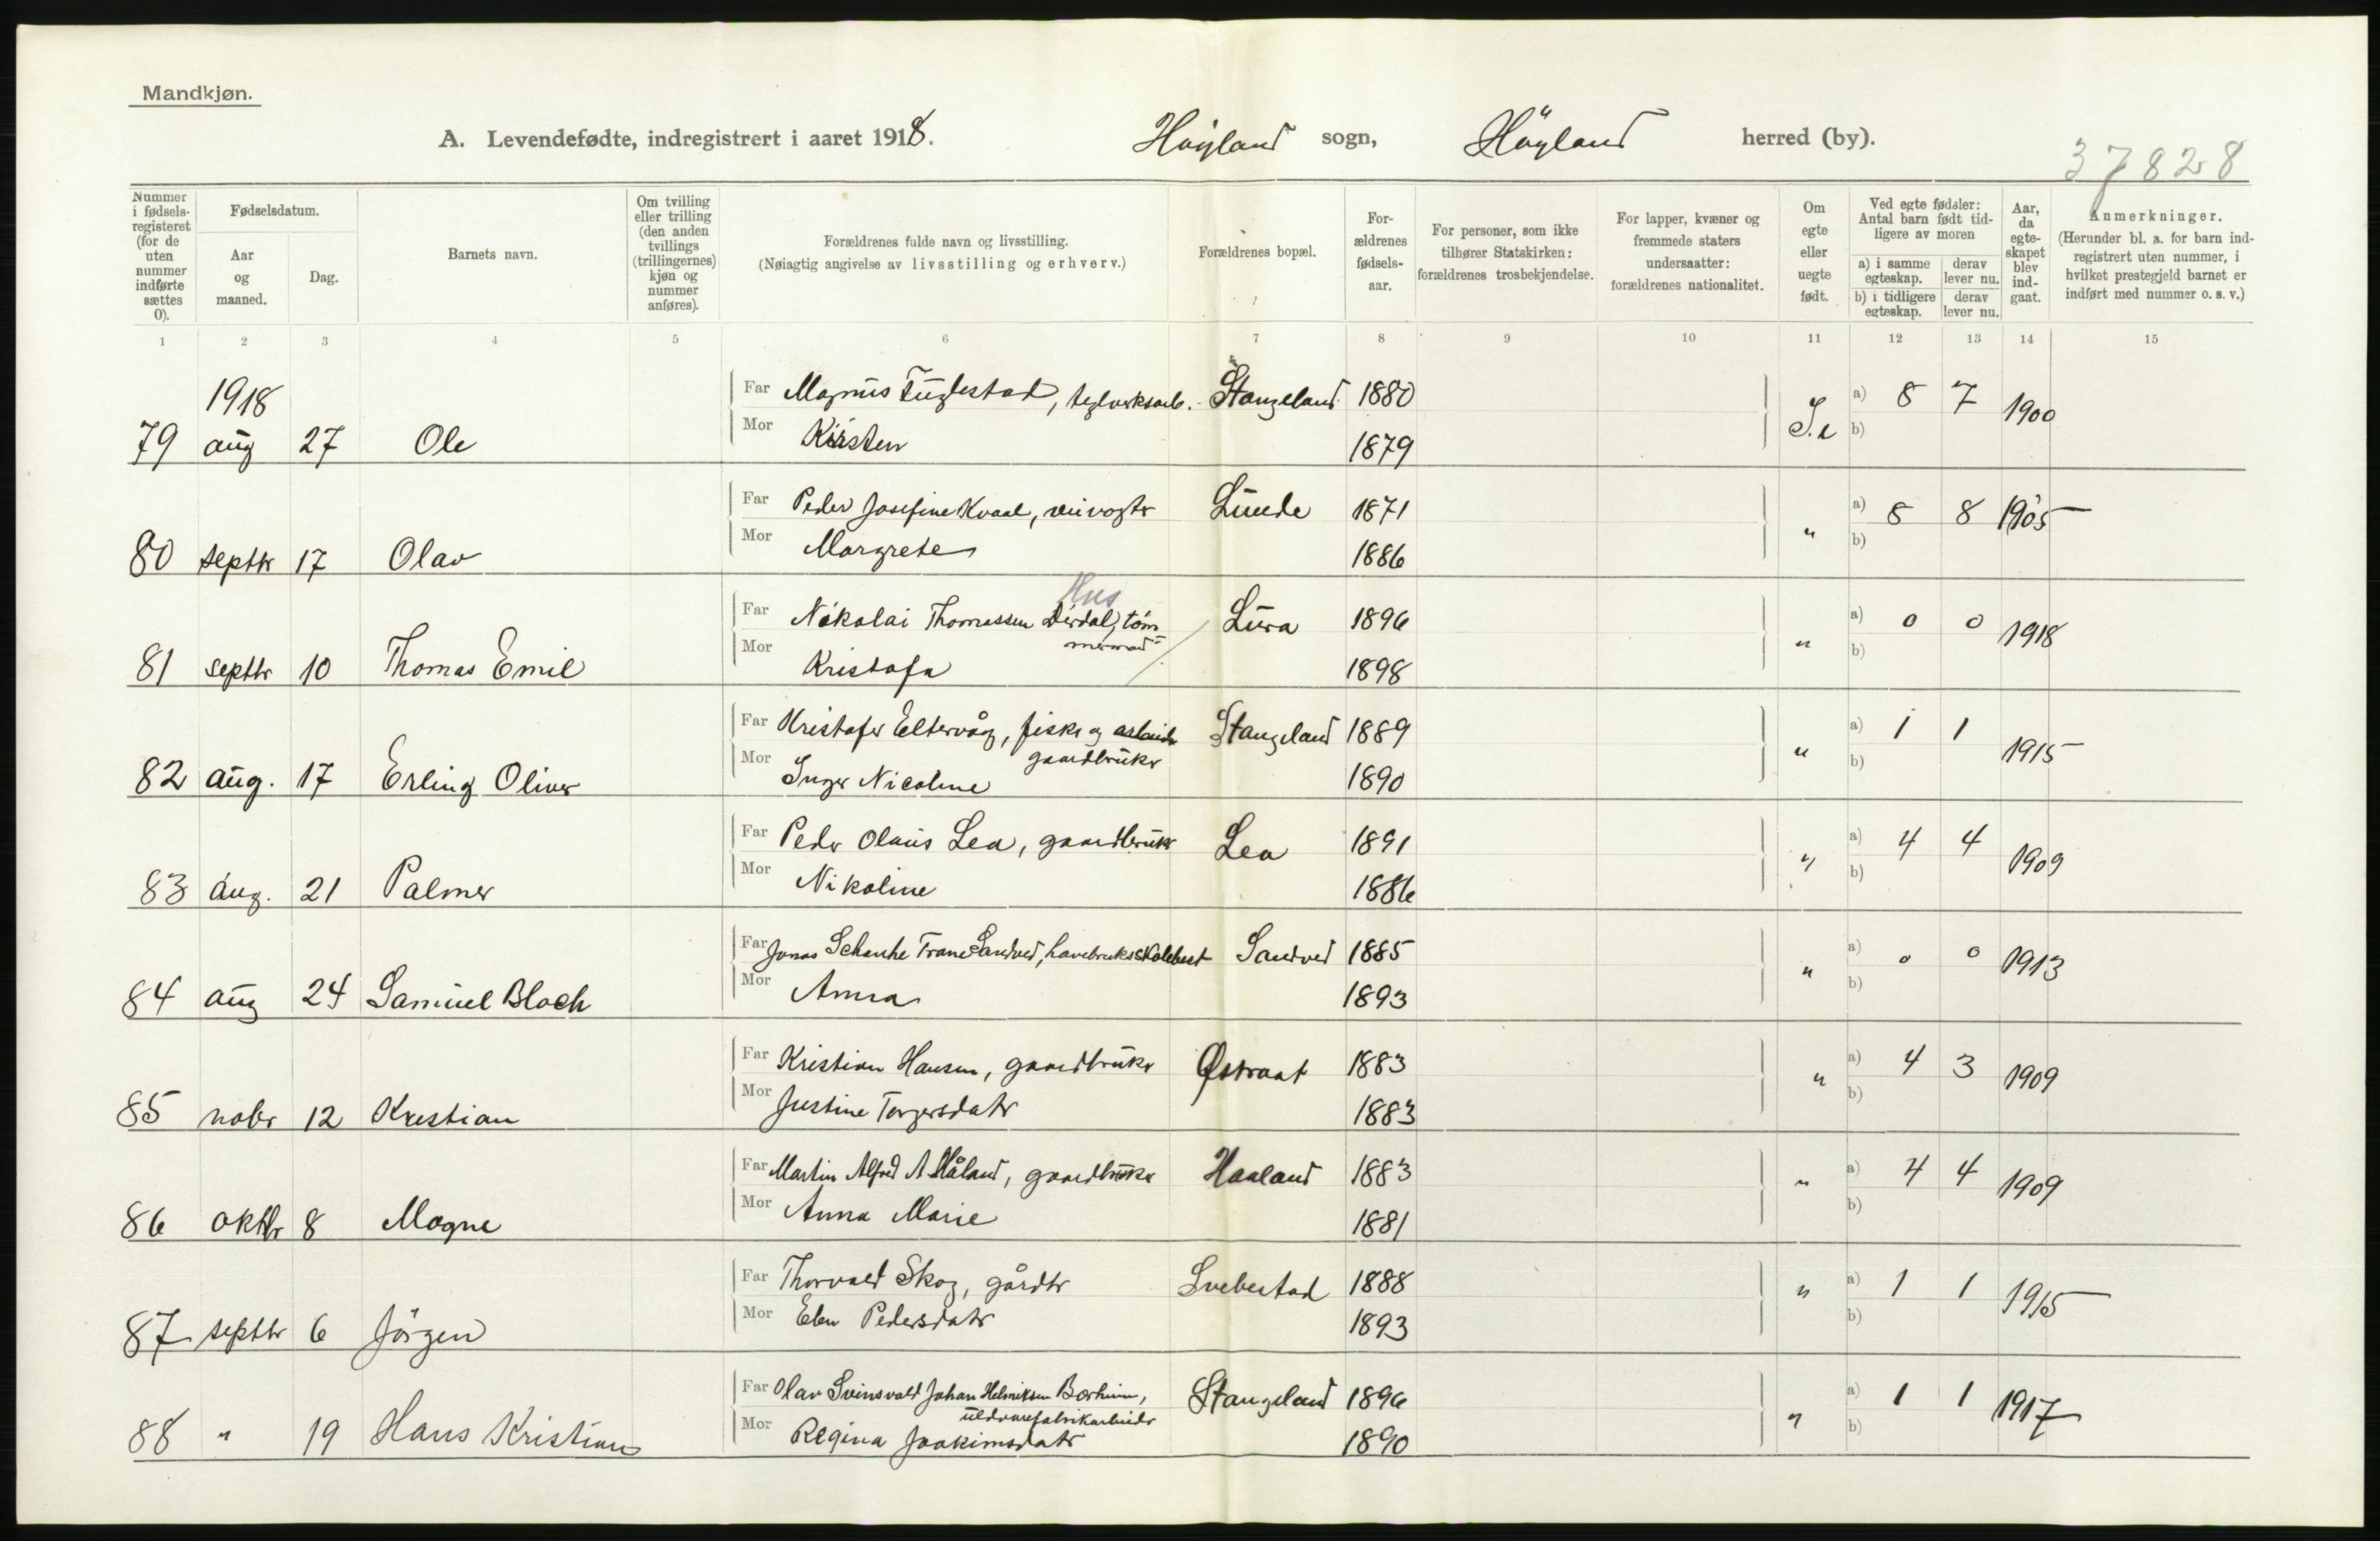 Mandkjøn.
A. Levendefødte, indregistrert i aaret 1918. Høyland sogn, Høyland herred (by).
37828
Nummer i fødsels-registeret (for de uten nummer indførte sættes 0).
Fødselsdatum.
Aar og maaned.
Dag.
Barnets navn.
Om tvilling eller trilling (den anden tvillings (trillingernes) kjøn og nummer anføres).
Forældrenes fulde navn og livsstilling.
(Nøiagtig angivelse av livsstilling og erhverv.)
Forældrenes bopæl.
For-ældrenes fødsels-aar.
For personer, som ikke tilhører Statskirken: forældrenes trosbekjendelse.
For lapper, kvæner og fremmede staters undersaatter: forældrenes nationalitet.
Om egte eller uegte født.
Ved egte fødsler: Antal barn født tid-ligere av moren
a) i samme egteskap. derav lever nu.
b) i tidligere egteskap. derav lever nu.
Aar, da egte-skapet blev ind-gaat.
Anmerkninger.
(Herunder bl. a. for barn ind-registrert uten nummer, i hvilket prestegjeld barnet er indført med nummer o. s. v.)
1 2 3 4 5 6 7 8 9 10 11 12 13 14 15
1918
Far Magnus Fuglestad, teglverksarb. Stangeland 1880 a) 8 7 1900
79 aug 27 Ole Mor Kirsten 1879 b)
Far Peder Josefine Kvaal, Lunde 1871 " a) 8 8 1905
80 septbr 17 Olav Mor Margrete 1886 b)
Hus
Far Nikolai Thomassen Dirdal, tøm Lura 1896 " a) 0 0 1918
mermand
81 septbr 10 Thomas Emil Mor Kristofa 1898 b)
Far Kristofer Eltervåg, fisker og arbeider Stangeland 1889 " a) 1 1 1915
gaardbruker
82 aug. 17 Erling Oliver Mor Inger Nicoline 1890 b)
Far Peder Olaus Lea, gaardbruker Lea 1891 " a) 4 4 1909
83 aug. 21 Palmer Mor Nikoline 1886 b)
Far Jonas Schanche Trane Sandved, havebruksskolebest Sandved 1885 " a) 0 0 1913
84 aug 24 Samuel Bloch Mor Anna 1893 b)
Far Kristian Hansen, gaardbruker Østraat 1883 " a) 4 3 1909
85 nobr 12 Kristian Mor Justine Torgersdatr 1883 b)
Far Martin Alfred A Håland, gaardbruker Haaland 1883 " a) 4 4 1909
86 oktbr 8 Magne Mor Anna Marie 1881 b)
Far Thorvald Skog, gårdbr Svebestad 1888 " a) 1 1 1915
87 septbr 6 Jörgen Mor Elen Pedersdatr 1893 b)
Far Olav Svinsvold Johan Helmiksen Borheim, Stangeland 1896 " a) 1 1 1917
uldvarefabrikarbeider
88 " 19 Hans Kristian Mor Regina Joakimsdatr 1890 b)